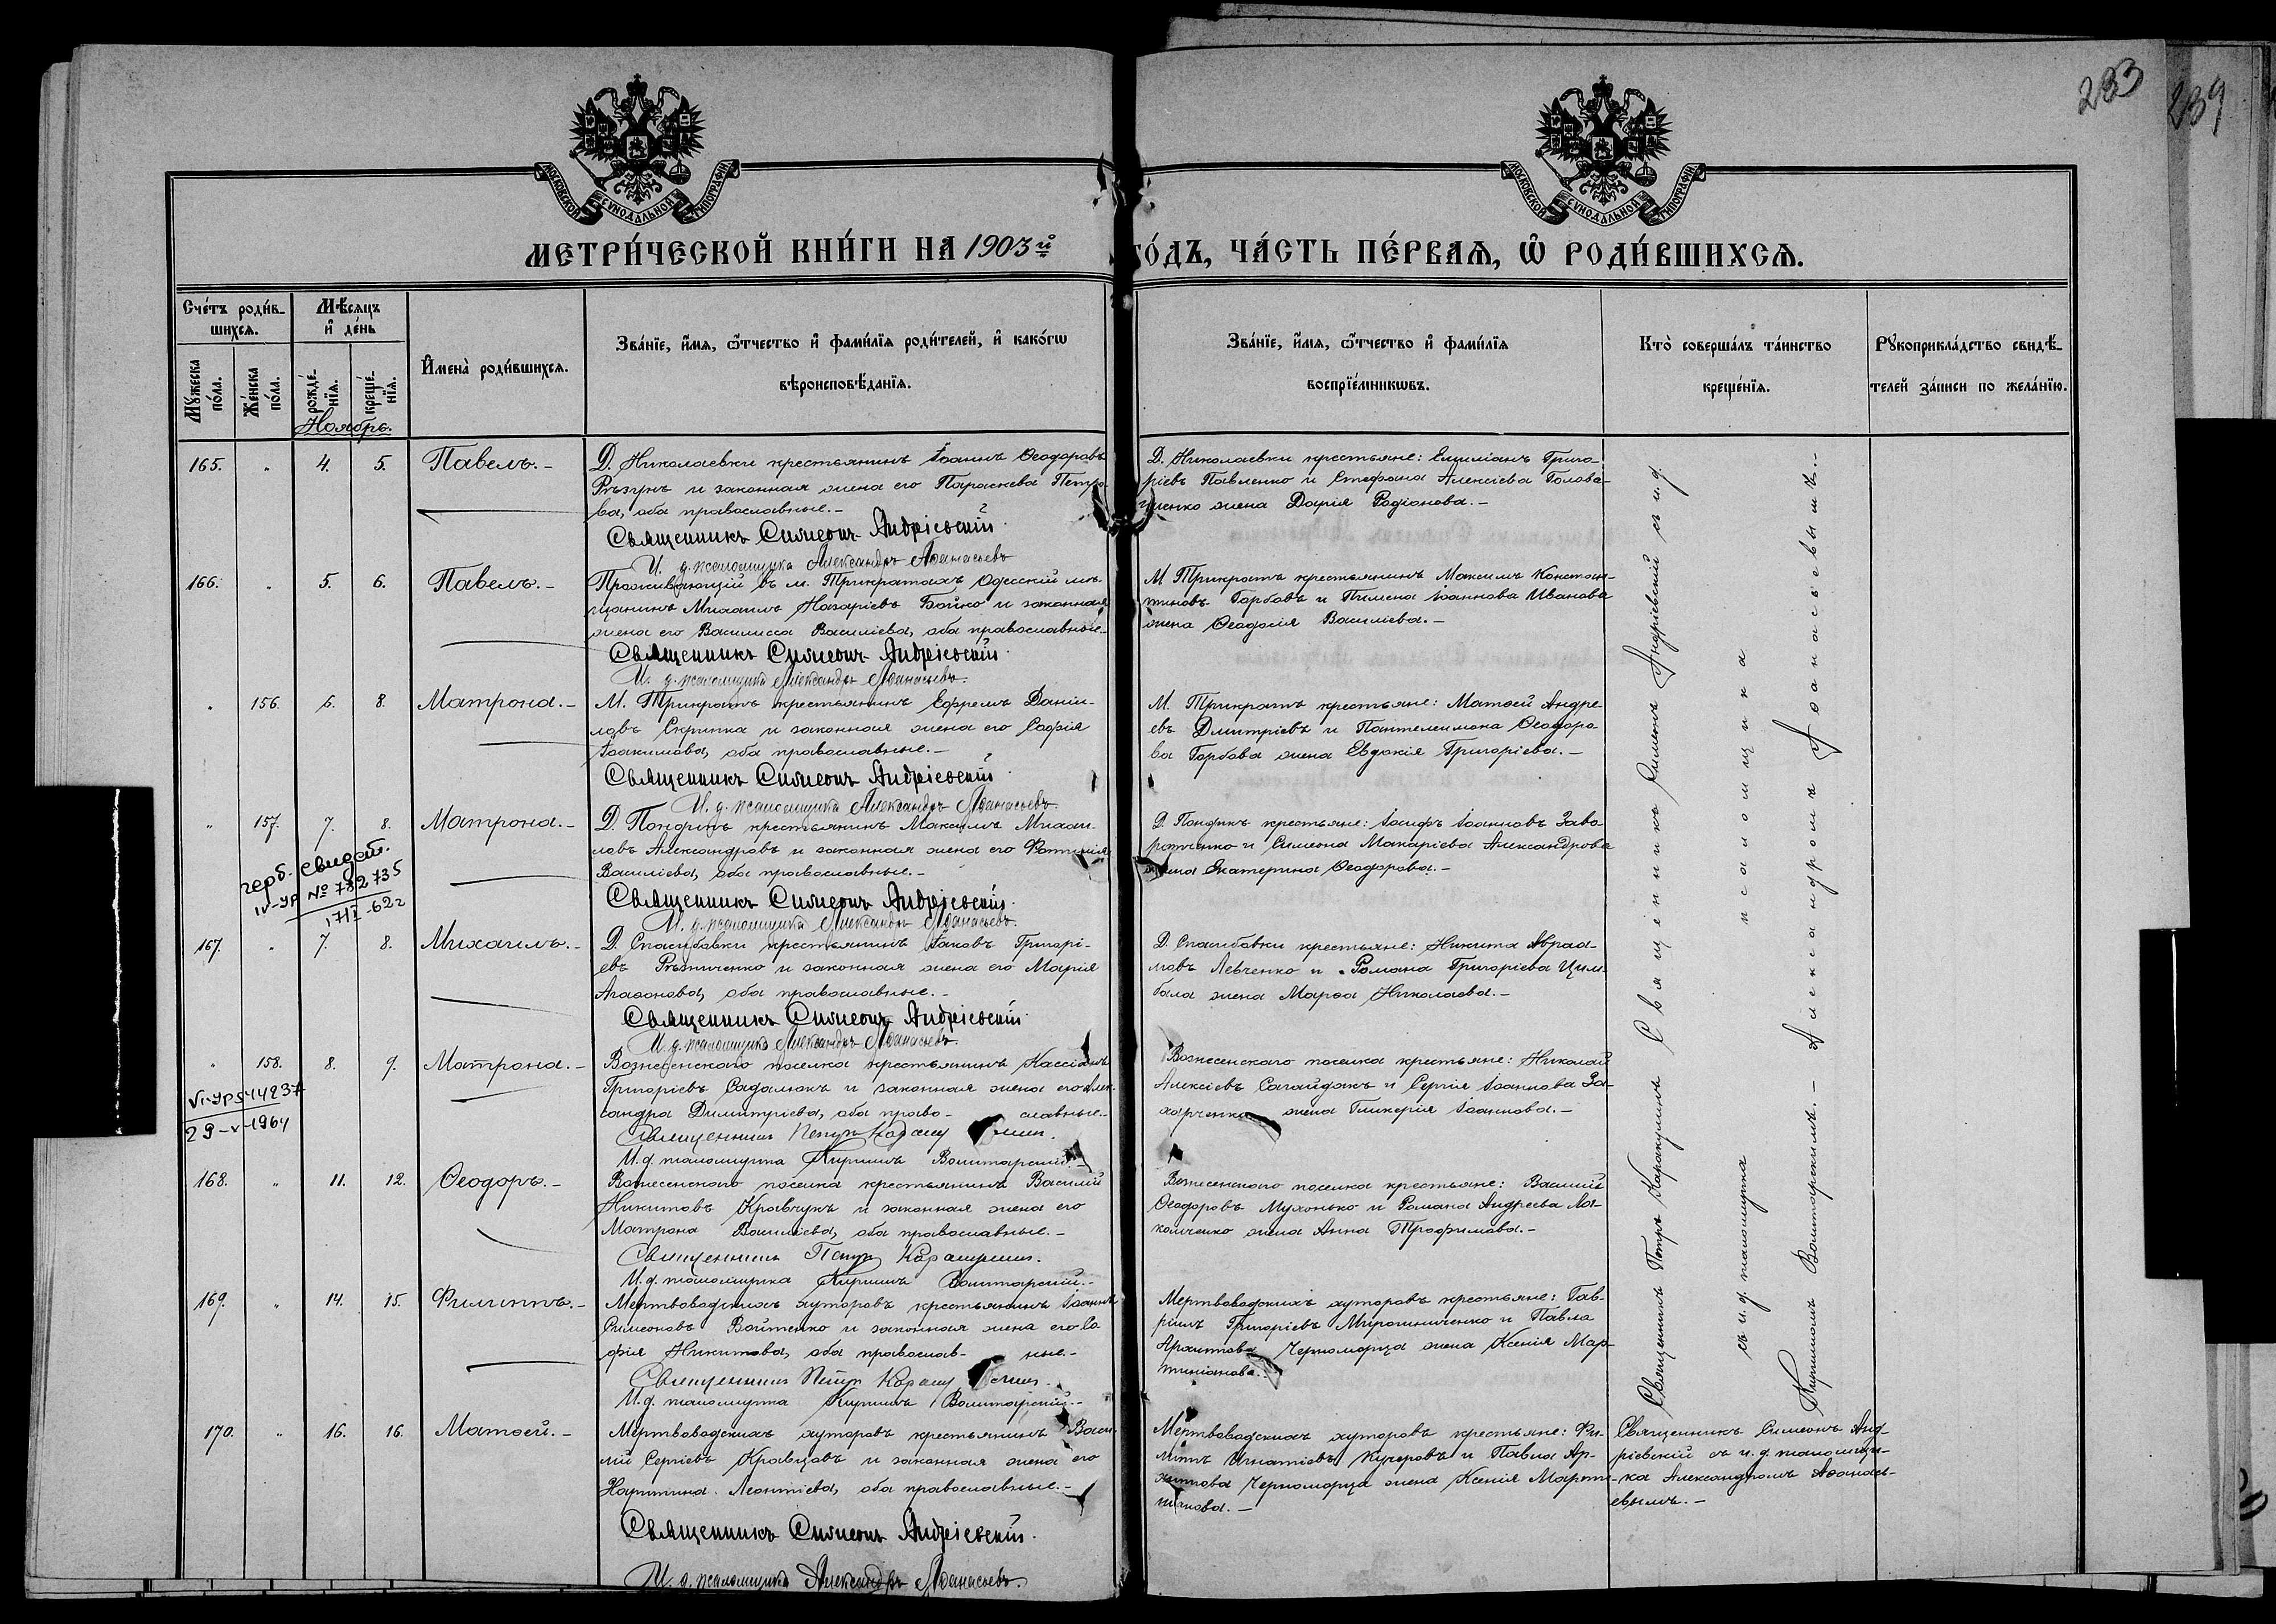 233
239
МОСКОВСКОЙ СѴНОДАЛЬНОЙ ТИПОГРАФІИ
МОСКОВСКОЙ СѴНОДАЛЬНОЙ ТИПОГРАФІИ
МЕТРИ́ЧЕСКОЙ КНИ́ГИ НА 1903й
го́дъ, ЧА́СТЬ ПЕ́РВАѦ, Ѡ РОДИ́ВШИХСѦ.
Сче́тъ роди́в-
шихсѧ.
Мꙋ́жеска по́ла.
Же́нска по́ла.
Мѣ́сѧцъ
и҆ де́нь
рожде́-
нїѧ.
креще́-
нїѧ.
И҆мена̀ роди́вшихсѧ.
Зва́нїе, и҆́мѧ, ѻ҆́тчество и҆ фами́лїѧ роди́телей, и҆ како́гѡ
вѣроисповѣ́данїѧ.
Зва́нїе, и҆́мѧ, ѻ҆́тчество и҆ фами́лїѧ
воспрїе́мникѡвъ.
Кто̀ соверша́лъ та́инство
креще́нїѧ.
Рꙋкоприкла́дство свидѣ́-
телей за́писи по жела́нїю.
Ноябрь.
165. " 4. 5. Павелъ.-
Д. Николаевки крестьянинъ Іоаннъ Ѳеодоровъ
Рѣзунъ и законная жена его Параскева Петро-
ва, оба православные.-
Священникъ Симеонъ Андріевскій
И. д. псаломщика Александръ Аѳанасьевъ
Д. Николаевки крестьяне: Емиліанъ Григо-
ріевъ Павленко и Стефана Алексіева Голова-
ченко жена Дарія Родіонова.-
166. " 5. 6. Павелъ.-
Проживающій въ м. Трикратахъ Одесскій мѣ-
щанинъ Михаилъ Назаріевъ Бойко и законная
жена его Василисса Василіева, оба православные.-
Священникъ Симеонъ Андріевскій
И. д. псаломщика Александръ Аѳанасьевъ.
М. Трикратъ крестьянинъ Максимъ Констан-
тиновъ Горбовъ и Пимена Іоаннова Иванова
жена Ѳеодосія Василіева.-
" 156. 6. 8. Матрона.-
М. Трикратъ крестьянинъ Ефремъ Даніи-
ловъ Скрипка и законная жена его Софія
Іоакимова, оба православные.-
Священникъ Симеонъ Андріевскій
И. д. псаломщика Александръ Аѳанасьевъ.
М. Трикратъ крестьяне: Матѳей Андре-
евъ Дмитріевъ и Пантелеимона Ѳеодоро-
ва Горбова жена Евдокія Григоріева.-
" 157. 7. 8. Матрона.-
герб. свидет.
IV-УР № 782735
17/I-62г
Д. Пондикъ крестьянинъ Максимъ Михаи-
ловъ Александровъ и законная жена его Фотинія
Василіева, оба православные.-
Священникъ Симеонъ Андріевскій
И. д. псаломщика Александръ Аѳанасьевъ.
Д. Пондикъ крестьяне: Іосифъ Іоанновъ Заво-
ротченко и Симеона Макаріева Александрова
жена Екатерина Ѳеодорова.-
167. " 7. 8. Михаилъ.-
Д. Спасибовки крестьянинъ Іаковъ Григорі-
евъ Рѣзниченко и законная жена его Марія
Агаѳонова, оба православные.-
Священникъ Симеонъ Андріевскій
И. д. псаломщика Александръ Аѳанасьевъ.
Д. Спасибовки крестьяне: Никита Авраа-
мовъ Левченко и Романа Григоріева Цим-
бала жена Марѳа Николаева.-
" 158. 8. 9. Матрона.-
VI-УР 514237
29-V-1964
Вознесенскаго поселка крестьянинъ Кассіанъ
Григоріевъ Садалюкъ и законная жена его Алек-
сандра Димитріева, оба право- славные.-
Священникъ Петръ Каракулинъ.
И. д. псаломщика Кириллъ Волитарскій.-
Вознесенскаго поселка крестьяне: Николай
Алексіевъ Сагайдакъ и Сергія Іоаннова За-
харченка жена Гликерія Іоаннова.-
168. " 11. 12. Ѳеодоръ.-
Вознесенскаго поселка крестьянинъ Василій
Никитовъ Кравчукъ и законная жена его
Матрона Василіева, оба православные.-
Священникъ Петръ Каракулинъ.
И. д. псаломщика Кириллъ Волитарскій.-
Вознесенскаго поселка крестьяне: Василій
Ѳеодоровъ Мухонько и Романа Андреева
жена Анна Трофимова.-
169. " 14. 15. Филиппъ.-
Мертвоводскихъ хуторовъ крестьянинъ Іоаннъ
Симеоновъ Войтенко и законная жена его Со-
фія Никитова, оба православ- ные.-
Священникъ Петръ Каракулинъ.
И. д. псаломщика Кириллъ Волитарскій.-
Мертвоводскихъ хуторовъ крестьяне: Гав-
ріилъ Григоріевъ Мирошниченко и Павла
Архипова Черноморца жена Ксенія Мар-
тиніанова.-
170. " 16. 16. Матѳей.-
Мертвоводскихъ хуторовъ крестьянинъ Васи-
лій Сергіевъ Кравцовъ и законная жена его
Харитина Леонтіева, оба православные.-
Священникъ Симеонъ Андріевскій.
И. д. псаломщика Александръ Аѳанасьевъ.
Мертвоводскихъ хуторовъ крестьяне: Фи-
липпъ Игнатіевъ Кучеровъ и Павла Ар-
хипова Черноморца жена Ксенія Марти-
ніанова.-
Священникъ Симеонъ Андріевскій съ и. д.
псаломщика
Александромъ Аѳанасьевымъ.-
Священникъ Петръ Каракулинъ
съ и. д. псаломщика
Кирилломъ Волитарскимъ.-
Священникъ Симеонъ Анд-
ріевскій съ и. д. псаломщи-
ка Александромъ Аѳанась-
евымъ.-